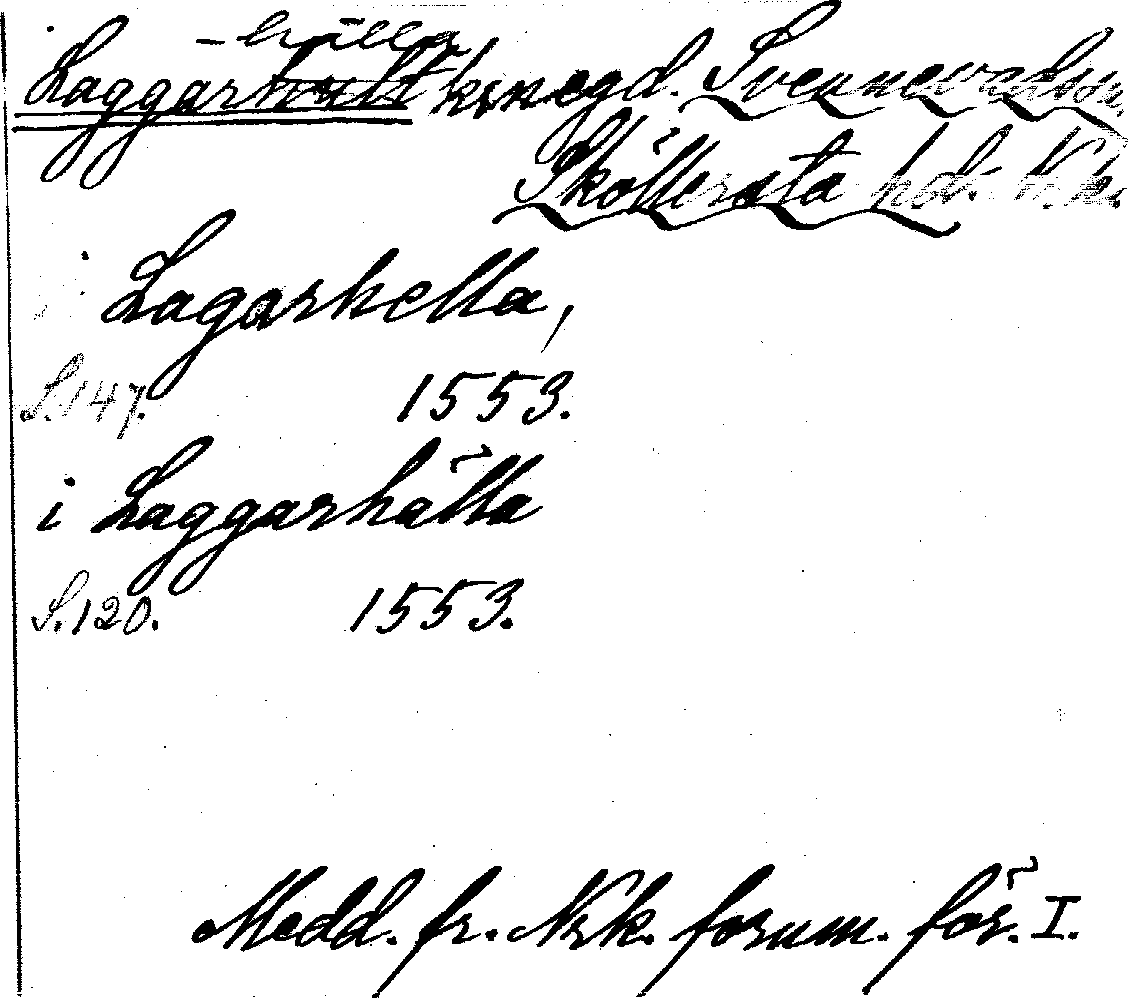 -hälla
Laggarhult kr.negd. Svennevads sn.
Sköllersta hd. N.k.
i Lagarhella,
S. 147. 1553.
i Laggarhälla
S. 120. 1553.
Medd. fr. Nrk. fornm. för. I.